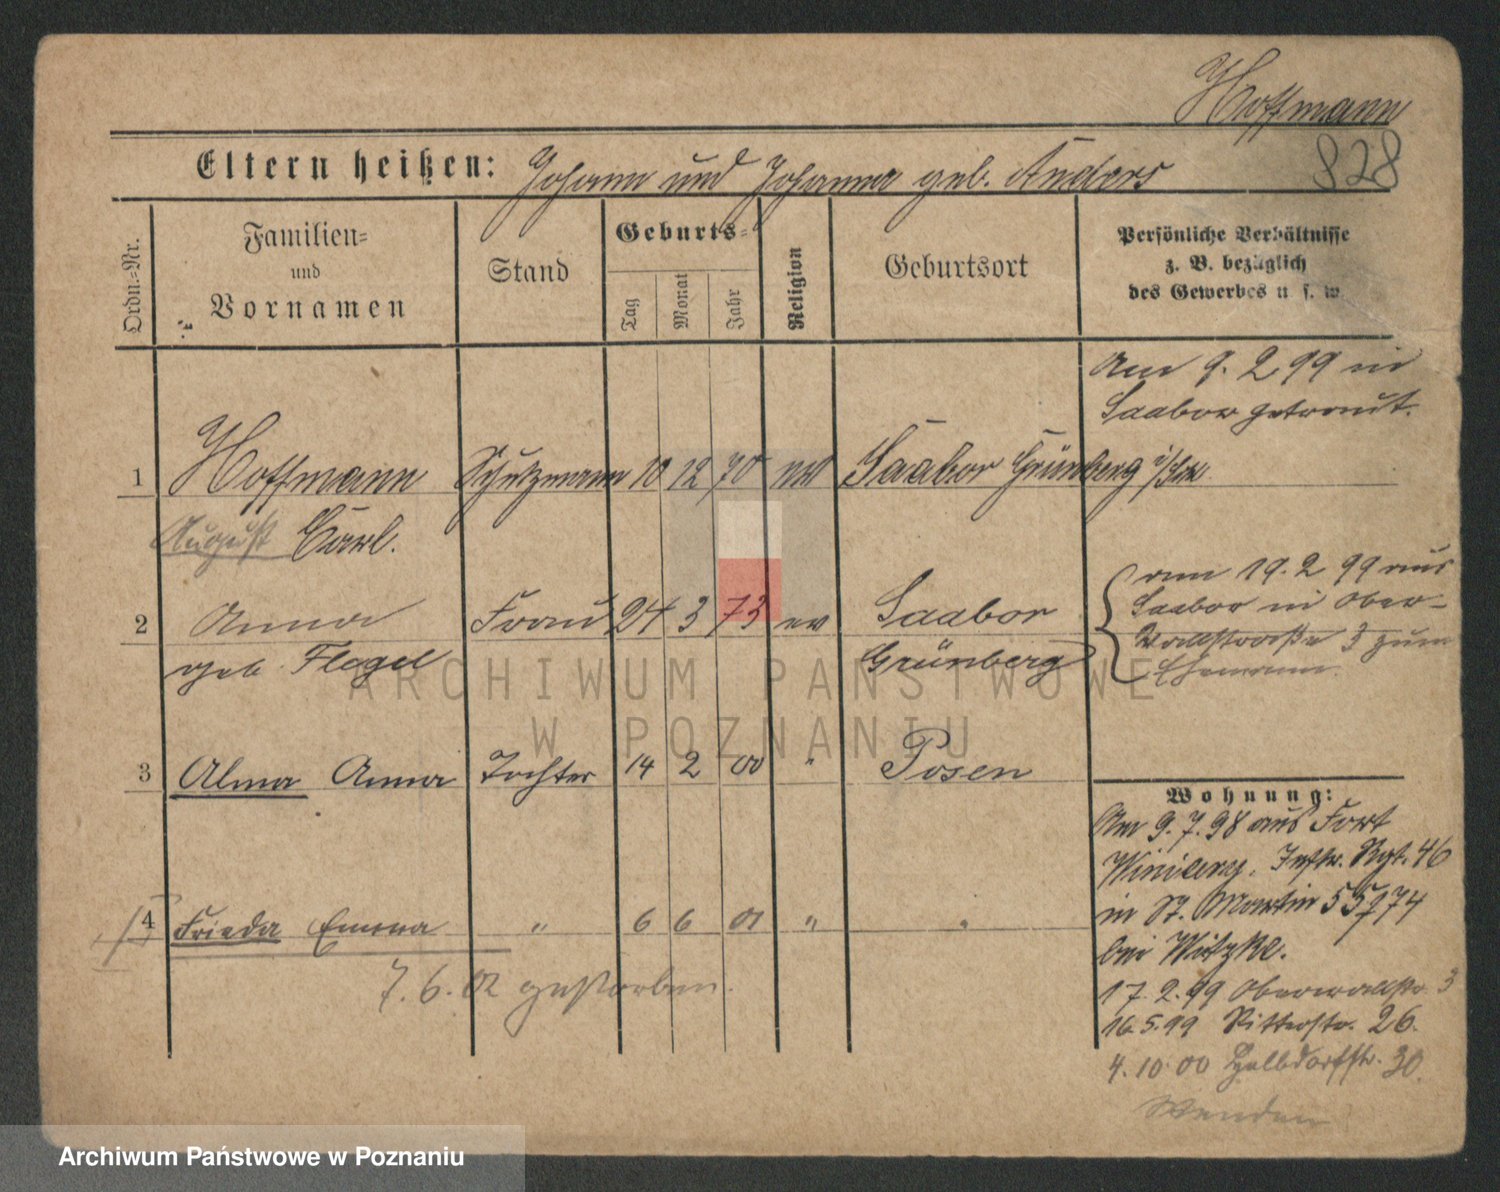 Hoffmann
828
Eltern heißen: Johann und Johanna geb. Anders
Ordn.=Nr.
Familien=
und
Vornamen
Stand
Geburts=
Tag
Monat
Jahr
Religion
Geburtsort
Persönliche Verhältnisse
z. B. bezüglich
des Gewerbes u. s. w.
Am 9. 2 99 in
Saabor getraut.
1 Hoffmann Schutzmann 10 12 70 ev Saabor Grünberg i/Schl.
August Carl.
2 Anna Frau 24 3 73 ev Saabor
geb. Flegel Grünberg
am 19. 2 99 aus
Saabor in Ober-
Wallstraße 3 zum
Ehemann.
3 Alma Anna Tochter 14 2 00 " Posen
Wohnung:
Am 9. 7. 98 aus Fort
Winiary, Inftr. Rgt. 46
in St. Martin
bei Witzke.
17. 2. 99 Oberwallstr. 3
16. 5. 99 Ritterstr. 26.
4. 10 00 30.
Wenden
4 Frieda Emma " 6 6 01 " "
7. 6. 02 gestorben.
ARCHIWUM PAŃSTWOWE
W POZNANIU
Archiwum Państwowe w Poznaniu